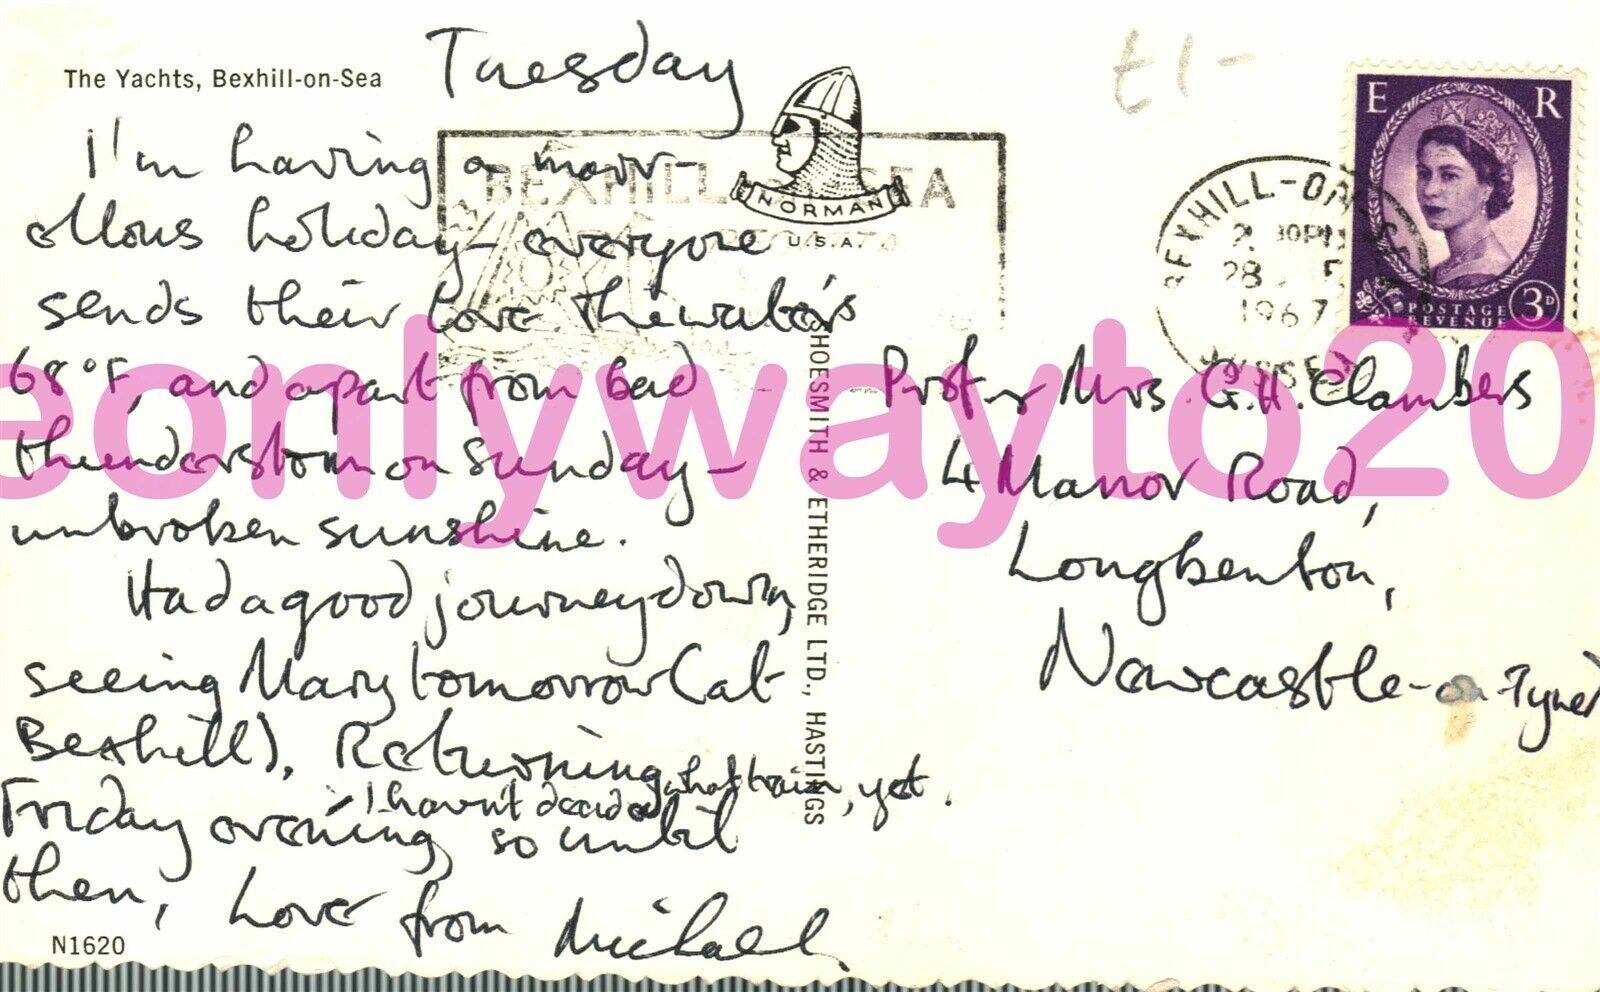 The Yachts, Bexhill-on-Sea
Tuesday
£1-
I'm having a marv-
ellous holiday - everyone
sends their love. The water's
68°F, and apart from bad
thunderstorm on Sunday -
unbroken sunshine.
Had a good journey down,
seeing Mary tomorrow (at
Bexhill). Returning
Friday evening, so until
I haven't decided what train, yet.
then, Love from Michael.
N1620
NORMAN
U.S.A.
BEXHILL-ON-SEA
SHOESMITH & ETHERIDGE LTD., HASTINGS
BEXHILL-ON-SEA
28
1967
SUSSEX
E R
POSTAGE
REVENUE
3D
Prof & Mrs. G.H. Chambers
4 Manor Road,
Longbenton,
Newcastle-on-Tyne
eonlywayto20